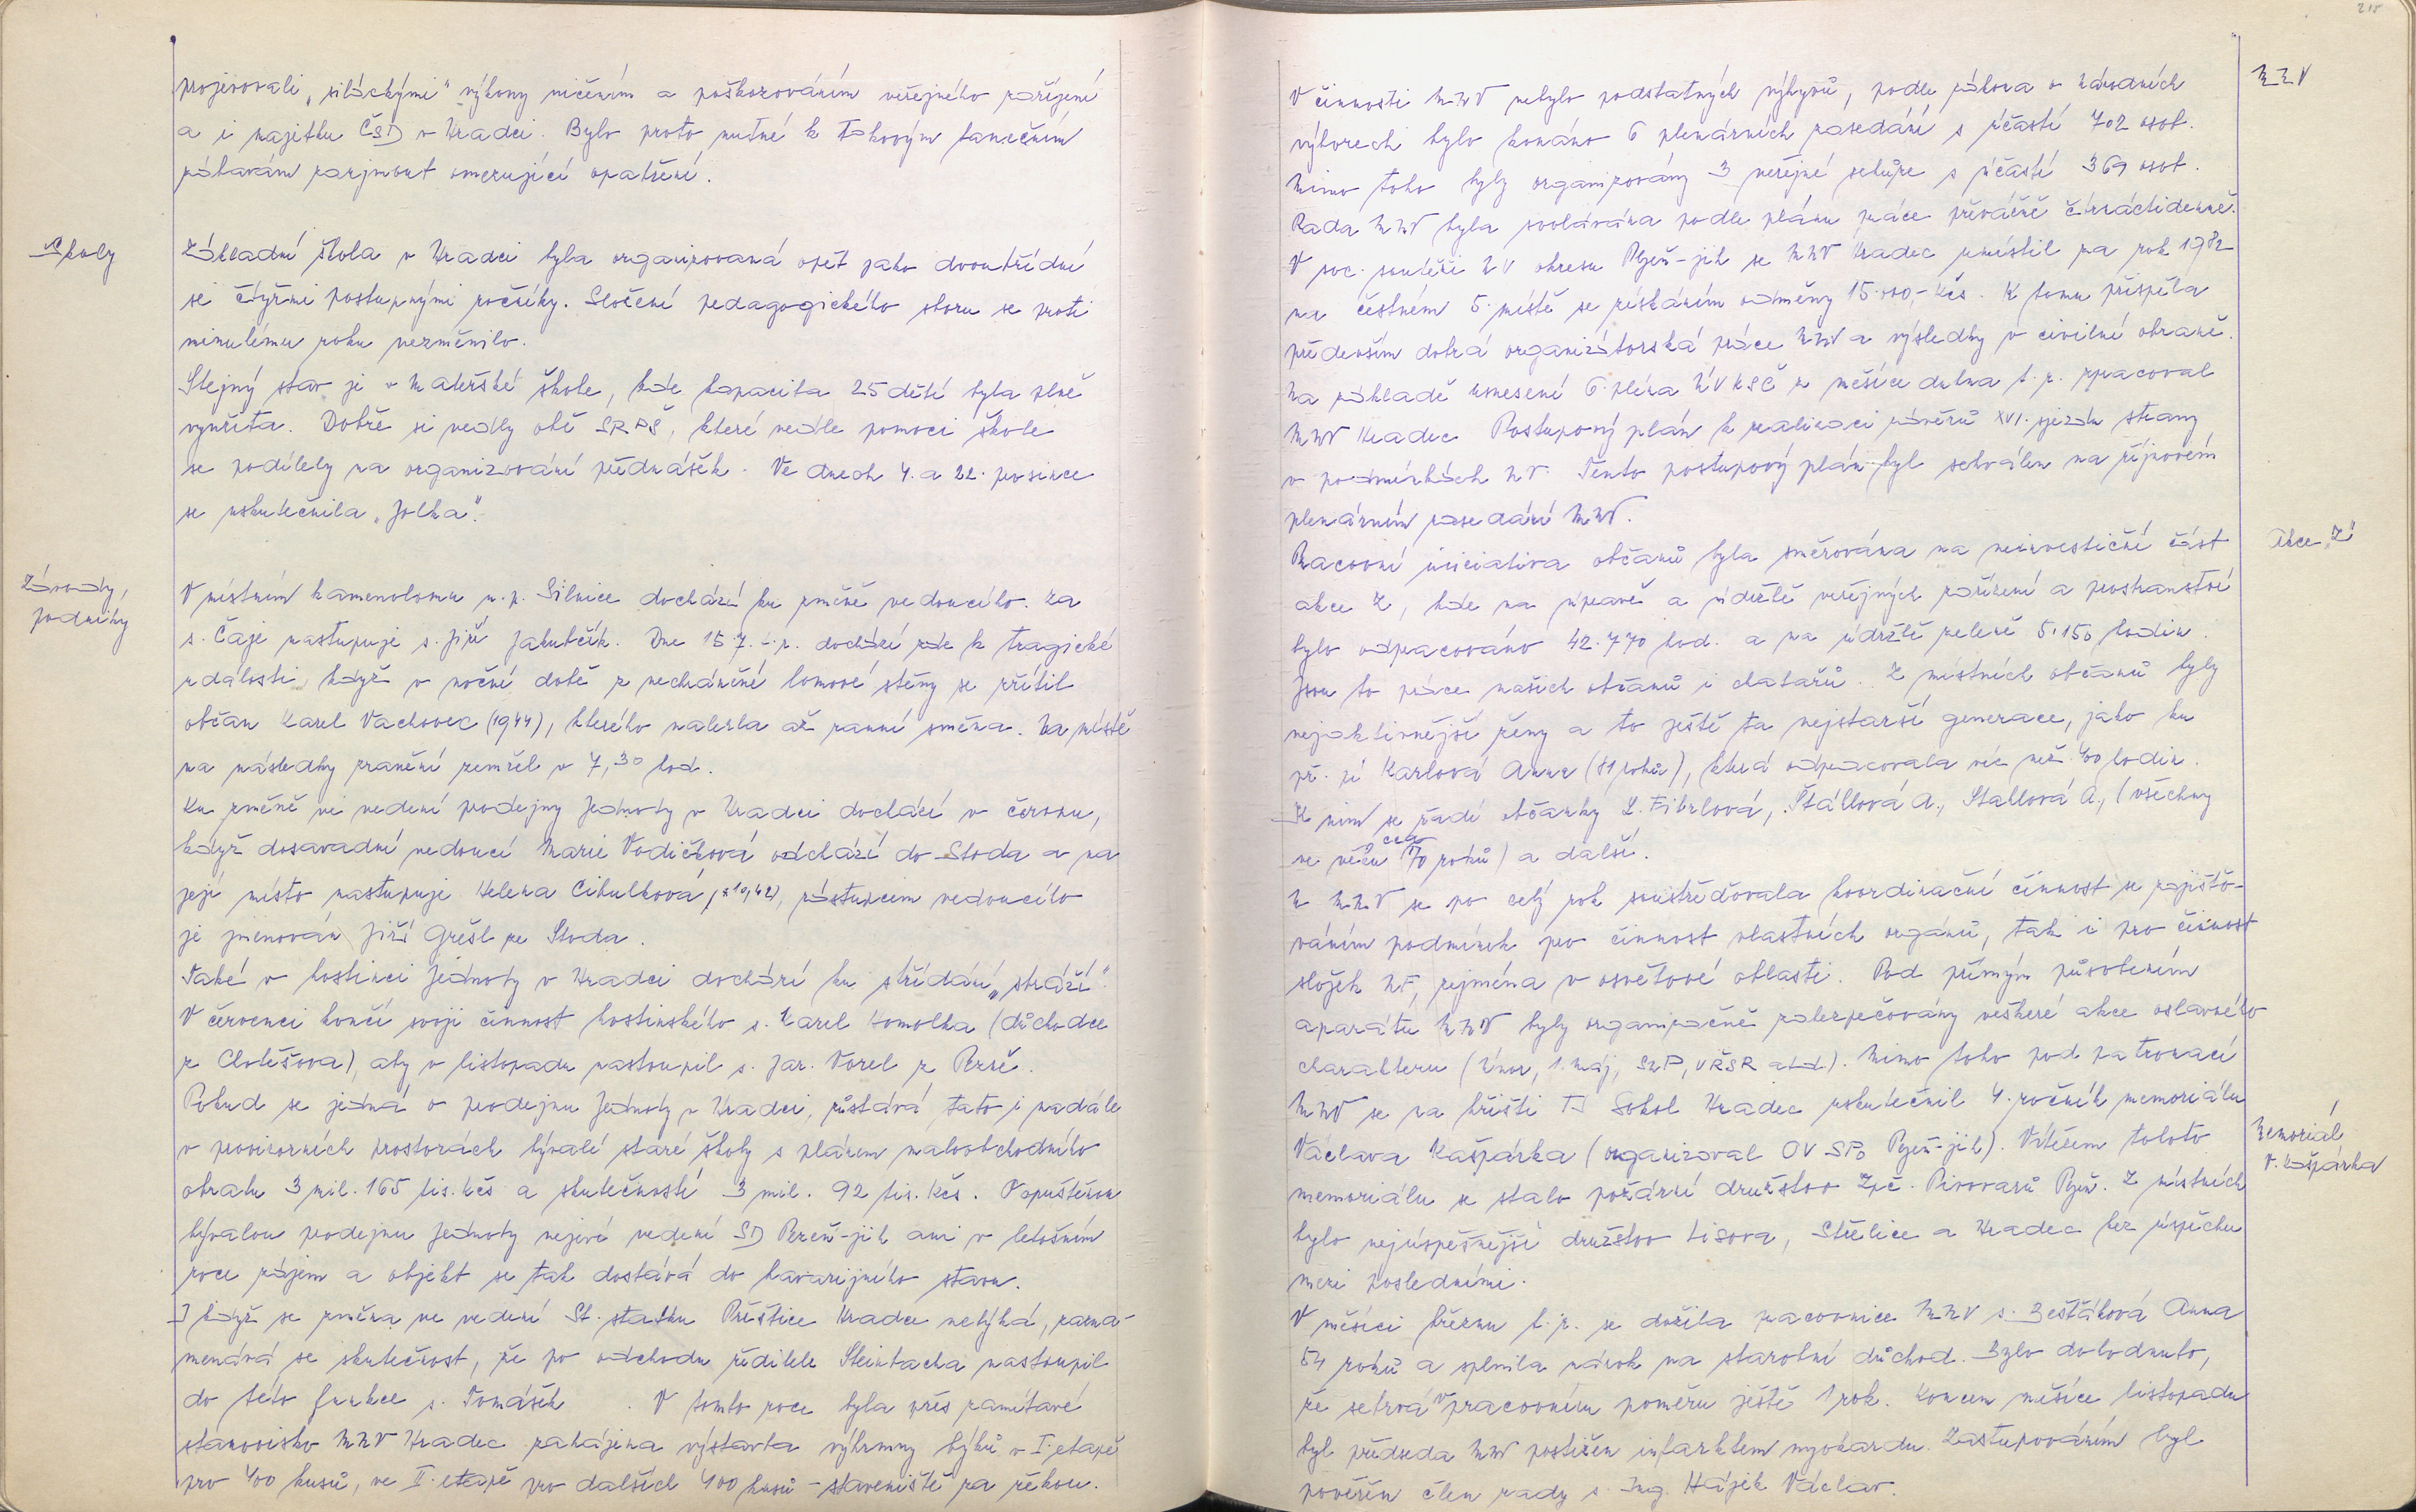 projevovali „siláckými" výkony ničením a poškozováním veřejného zařízení
a i majetku ČSD v Hradci. Bylo proto nutné k takovým tanečním
zábavám zaujmout omezující opatření.
Školy
Základní škola v Hradci byla organizovaná opět jako dvoutřídní
se čtyřmi postupnými ročníky. Složení pedagogického sboru se proti
minulému roku nezměnilo.
Stejný stav je v mateřské škole, kde kapacita 25 dětí byla plně
využita. Dobře si vedly obě SRPŠ, které vedle pomoci škole
se podílely na organizování přednášek. Ve dnech 4. a 22. prosince
se uskutečnila „Jolka".
Závody,
podniky
V místním kamenolomu n.p. Silnice dochází ku změně vedoucího. Za
s. Čaje nastupuje s. Jiří Jakubčík. Dne 15.7. t.r. dochází zde k tragické
události, když v noční době z nechráněné lomové stěny se zřítil
občan Karel Vachovec (1944), kterého nalezla až ranní směna. Na místě
na následky zranění zemřel v 7,30 hod.
Ku změně ve vedení prodejny Jednoty v Hradci dochází v červnu,
když dosavadní vedoucí Marie Vodičková odchází do Stoda a na
její místo nastupuje Helena Cibulková, zástupcem vedoucího
je jmenován Jiří Grešl ze Stoda.
Také v hostinci Jednoty v Hradci dochází ku střídání „stráží".
V červenci končí svoji činnost hostinského s. Karel Homolka (důchodce
z Chotěšova), aby v listopadu nastoupil s. Jar. Vorel z
Pokud se jedná o prodejnu Jednoty v Hradci, zůstává tato i nadále
v provizorních prostorách bývalé staré školy s plánem maloobchodního
obratu 3 mil. 165 tis. Kčs a skutečností 3 mil. 92 tis. Kčs. O opuštěnou
bývalou prodejnu Jednoty nejeví vedení SD Plzeň-jih ani v letošním
roce zájem a objekt se tak dostává do havarijního stavu.
I když se změna ve vedení St. statku Přeštice Hradce netýká, zazna-
menává se skutečnost, že po odchodu ředitele Steinbacha nastoupil
do této funkce s. Tomášek . V tomto roce byla přes zamítavé
stanovisko MNV Hradec zahájena výstavba výkrmny býků v I. etapě
pro 400 kusů, ve II. etapě pro dalších 400 kusů - staveniště za řekou.
215
MNV
V činnosti MNV nebylo podstatných výkyvů, podle zákona o národních
výborech bylo konáno 6 plenárních zasedání s účastí 702 osob.
Mimo toho byly organizovány 3 veřejné schůze s účastí 369 osob.
Rada MNV byla svolávána podle plánu práce převážně čtrnáctidenně.
V soc. soutěži NV okresu Plzeň-jih se MNV Hradec umístil za rok 1982
na čestném 5. místě se získáním odměny 15.000,- Kčs. K tomu přispěla
především dobrá organizátorská práce MNV a výsledky v civilní obraně.
Na základě usnesení 6. pléna ÚV KSČ z měsíce dubna t.r. zpracoval
MNV Hradec Postupový plán k realizaci závěrů XVI. sjezdu strany
v podmínkách NV. Tento postupový plán byl schválen na říjnovém
plenárním zasedání MNV.
Akce „Z"
Pracovní iniciativa občanů byla směrována na neinvestiční část
akce Z, kde na úpravě a údržbě veřejných zařízení a prostranství
bylo odpracováno 42.770 hod. a na údržbě zeleně 5.150 hodin.
Jsou to práce našich občanů i chatařů. Z místních občanů byly
nejaktivnější ženy a to ještě ta nejstarší generace, jako ku
př. pí Karlová Anna (81 roků), která odpracovala víc než 400 hodin.
K nim se řadí občanky L. Fibrlová, Štállová A., Stallová A., (všechny
ve věku cca 70 roků) a další.
U MNV se po celý rok soustřeďovala koordinační činnost se zajišťo-
váním podmínek pro činnost vlastních orgánů, tak i pro činnost
složek NF, zejména v osvětové oblasti. Pod přímým působením
aparátu MNV byly organizačně zabezpečovány veškeré akce oslavného
charakteru (Únor, 1. Máj, SNP, VŘSR atd). Mimo toho pod patronací
MNV se na hřišti TJ Sokol Hradec uskutečnil 4. ročník memoriálu
Memoriál
V. Kašpárka
Václava Kašpárka (organizoval OV SPO Plzeň-jih). Vítězem tohoto
memoriálu se stalo požární družstvo Zpč. Pivovarů Plzeň. Z místních
bylo nejúspěšnější družstvo Lisova, Střelice a Hradec bez úspěchu
mezi posledními.
V měsíci březnu t.r. se dožila pracovnice MNV s. Bešťáková Anna
54 roků a splnila nárok na starobní důchod. Bylo dohodnuto,
že setrvá v pracovním poměru ještě 1 rok. Koncem měsíce listopadu
byl předseda MNV postižen infarktem myokardu. Zastupováním byl
pověřen člen rady s. Ing. Hájek Václav.